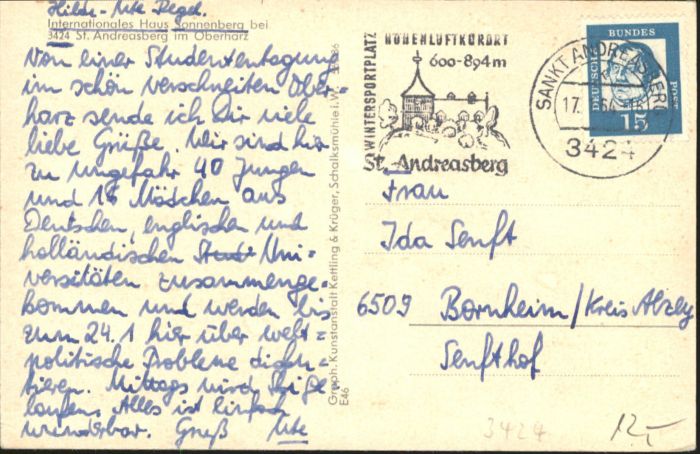 Hilde-Ute Degel.
Internationales Haus Sonnenberg bei
3424 St. Andreasberg im Oberharz
Von einer Studententagung
im schön verschneiten Ober-
harz sende ich dir viele
liebe Grüße. Wir sind hier
zu ungefähr 40 Jungen
und 16 Mädchen aus
Deutschen, englischen und
holländischen Uni-
versitäten zusammenge-
kommen und werden bis
zum 24.1 hier über welt-
politische Probleme disku-
tieren. Mittags wird Ski ge-
laufen. Alles ist einfach
wunderbar. Gruß Ute
Graph. Kunstanstalt Kettling & Krüger, Schalksmühle i. W.
E46
WINTERSPORTPLATZ
HÖHENLUFTKURORT
600-894m
St. Andreasberg
SANKT ANDREASBERG
17.
3424
DEUTSCHE
BUNDES
POST
15
Frau
Ida Senft
6509 Bornheim/Kreis Alzey
Senfthof
3424
12,-